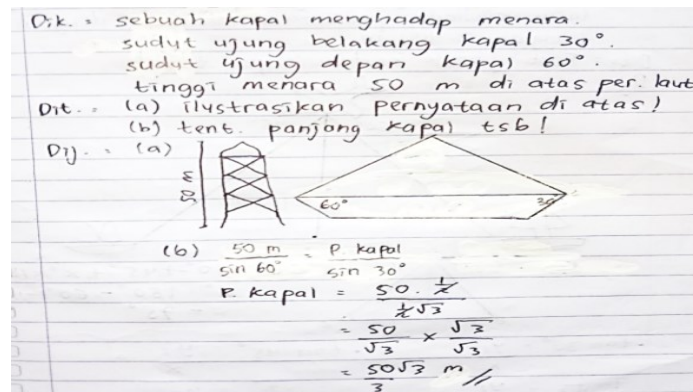 Dik. : sebuah kapal menghadap menara.
sudut ujung belakang kapal 30°.
sudut ujung depan kapal 60°.
tinggi menara 50 m di atas per. laut
Dit. : (a) ilustrasikan pernyataan di atas!
(b) tent. panjang kapal tsb!
Dij. : (a)
50 m
60° 30°
(b) 50 m / sin 60° = P. kapal / sin 30°
P. kapal = 50 . 1/2 / 1/2 √3
= 50/√3 × √3/√3
= 50√3/3 m //